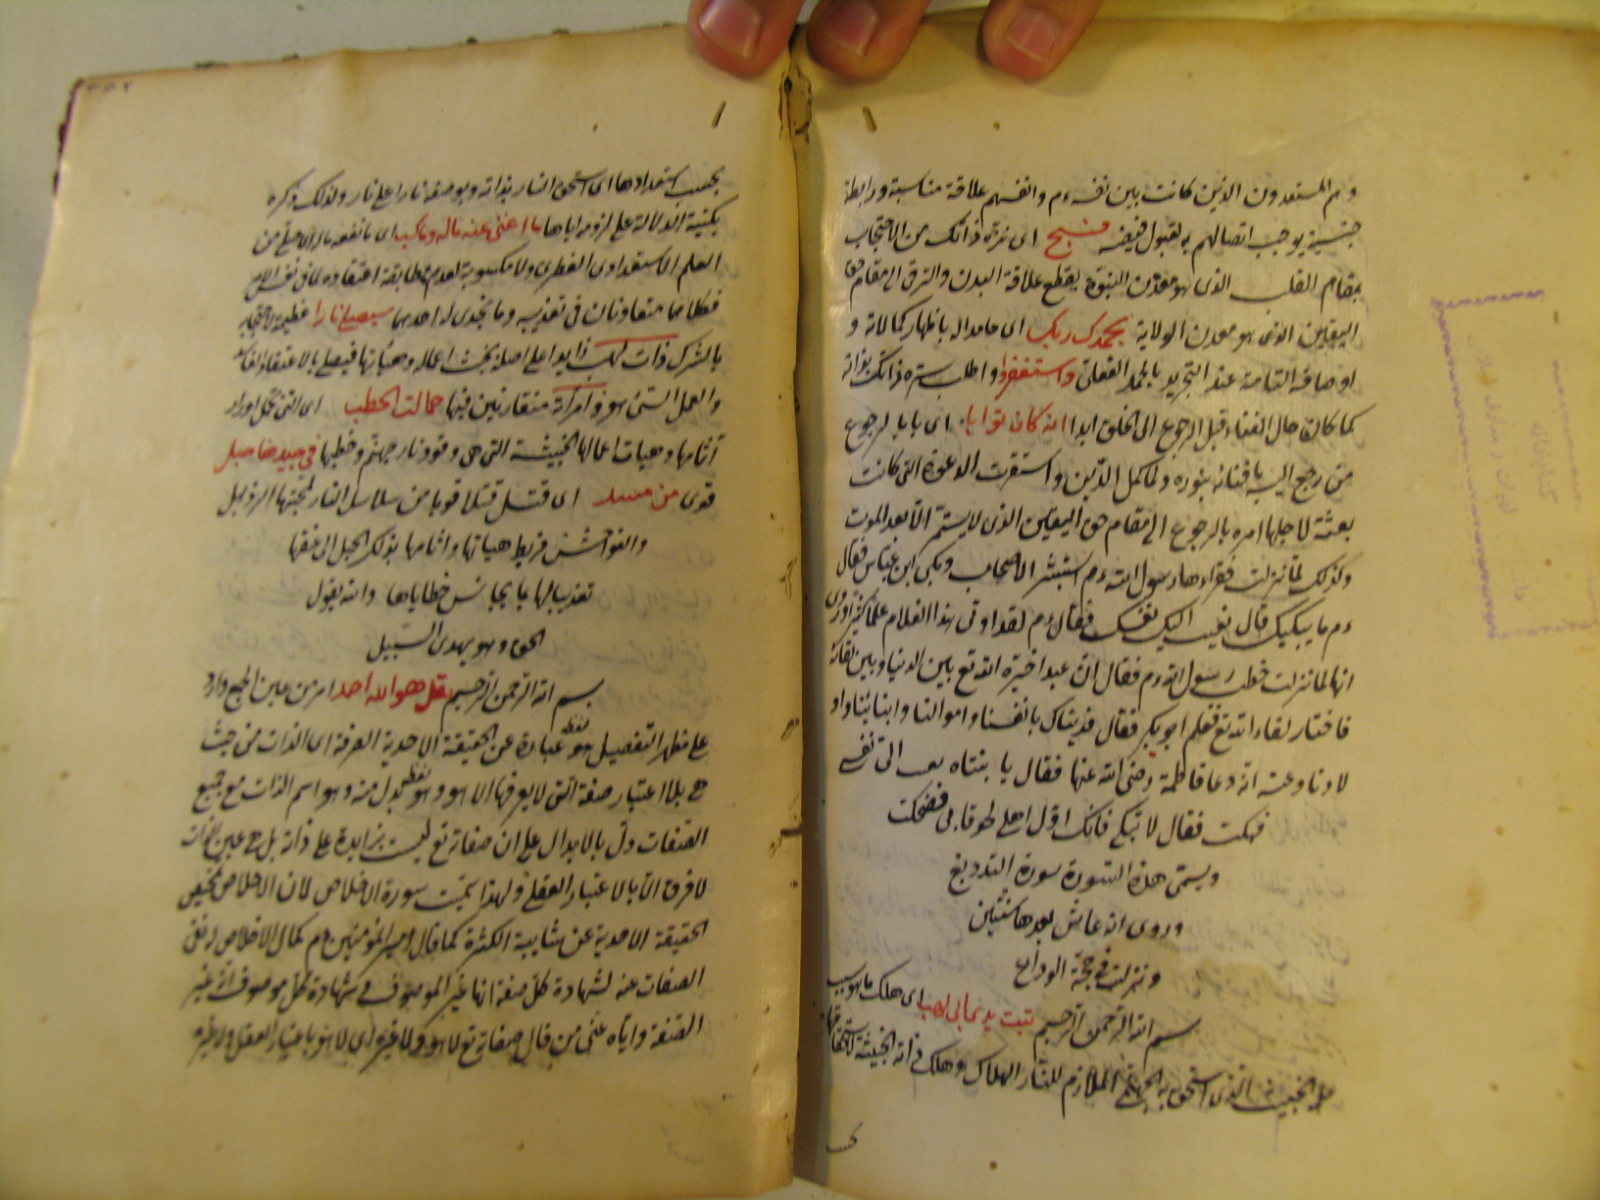 وهم المستعدون الذين كانت بين نفسه ءم وانفسهم علاقة مناسبة ورابطة
جنسية يوجب اتصالهم به لقبول فيضه فسبح اى نزه ذاتك من الاحتجاب
بمقام القلب الذى هو معدن النبوة بقطع علاقة البدن والترقى الى مقام حق
اليقين الذى هو معدن الولاية بحمد ربك اى حامدا له باظهار كمالاته و
اوصافه التامة عند التجريد بالحمد الفعلى واستغفره واطلب ستره ذاتك بذاته
كما كان حال الفناء قبل الرجوع الى الخلق ابدا انه كان توابا اى بابا لرجوع
من رجع اليه بافنائه بنوره ولما كمل الدين واستقرت الدعوة التى كانت
بعثته لاجلها امره بالرجوع الى مقام حق اليقين الذى لا يستمر الا بعد الموت
ولذلك لما نزلت فقراءها رسول الله ءم استبشر الاصحاب وبكى ابن عباس فقال
ءم ما يبكيك قال نعيت اليك نفسك فقال ءم لقد اوتى هذا الغلام علما كثيرا وروى
انها لما نزلت خطب رسول الله ءم فقال ان عبدا خيره الله تع بين الدنيا وبين لقائه
فاختار لقاء الله تع فعلم ابو بكر فقال فديناك بانفسنا واموالنا وابنائنا واو
لادنا وعنه انه دعا فاطمة رضى الله عنها فقال يا بنتاه نعيت الى نفسى
فبكت فقال لا تبكى فانك اول اهلى لحوقا بى فضحكت
ويسمى هذه السورة سورة التوديع
وروى انه عاش بعدها سنتين
ونزلت فى حجة الوداع
بسم الله الرحمن الرحيم تبت يدا ابى لهب اى هلك ما هو سبب
عمله الخبيث الذى استحق به الجهنمى الملازم للنار الهلاك وهلك ذاته الخبيثة لاستحقاقها
بحسب استعدادها اى استحق النار بذاته وبوصفه نارا على نار ولذلك ذكره
بكنيته الدلالة على لزومه اياها ما اغنى عنه ماله وما كسب اى ما نفعه ماله الاصلى من
العلم الاستعدادى الفطرى ولا مكسوبه لعدم مطابقة اعتقاده لما فى نفس الامر
فكلاهما متعاونان فى تعذيبه وما يجدى له احدهما سيصلى نارا عظيمة لاحتجابه
بالشرك ذات لهب زايدا على اصله بخبث اعماله وهيأتها فيصلى بالاعتقاد الفاسد
والعمل السئ هو وامرأته متقارنين فيها حمالت الحطب اى التى تحمل اوزار
آثامها وهيات اعمالها الخبيثة التى هى وقود نار جهنم وحطبها فى جيدها حبل
قوى من مسد اى فتل فتلا قويا من سلاسل النار لمحبتها الرذايل
والفواحش فربط هيأتها واثامها بذلك الحبل الى عنقها
تعذيبا لها بما يجانس خطاياها والله يقول
الحق وهو يهدى السبيل
بسم الله الرحمن الرحيم قل هو الله احد امر من عين الجمع وارد
على مظهر التفصيل هو لفظ عبارة عن الحقيقة الاحدية الصرفة اى الذات من حيث
هى بلا اعتبار صفة التى لا يعرفها الا هو وهو لفظ بدل منه وهو اسم الذات مع جميع
الصفات دل بالابدال على ان صفاته تع ليست بزايدة على ذاته بل هى عين الذات
لا فرق الا بالاعتبار العقلى ولهذا سميت سورة الاخلاص لان الاخلاص تمحيض
الحقيقة الاحدية عن شايبة الكثرة كما قال امير المؤمنين ءم كمال الاخلاص له نفى
الصفات عنه لشهادة كل صفة انها غير الموصوف وشهادة كل موصوف انه غير
الصفة واياه عنى من قال صفاته تع لا هو ولا غيره اى لا هو باعتبار العقل ولا غيره